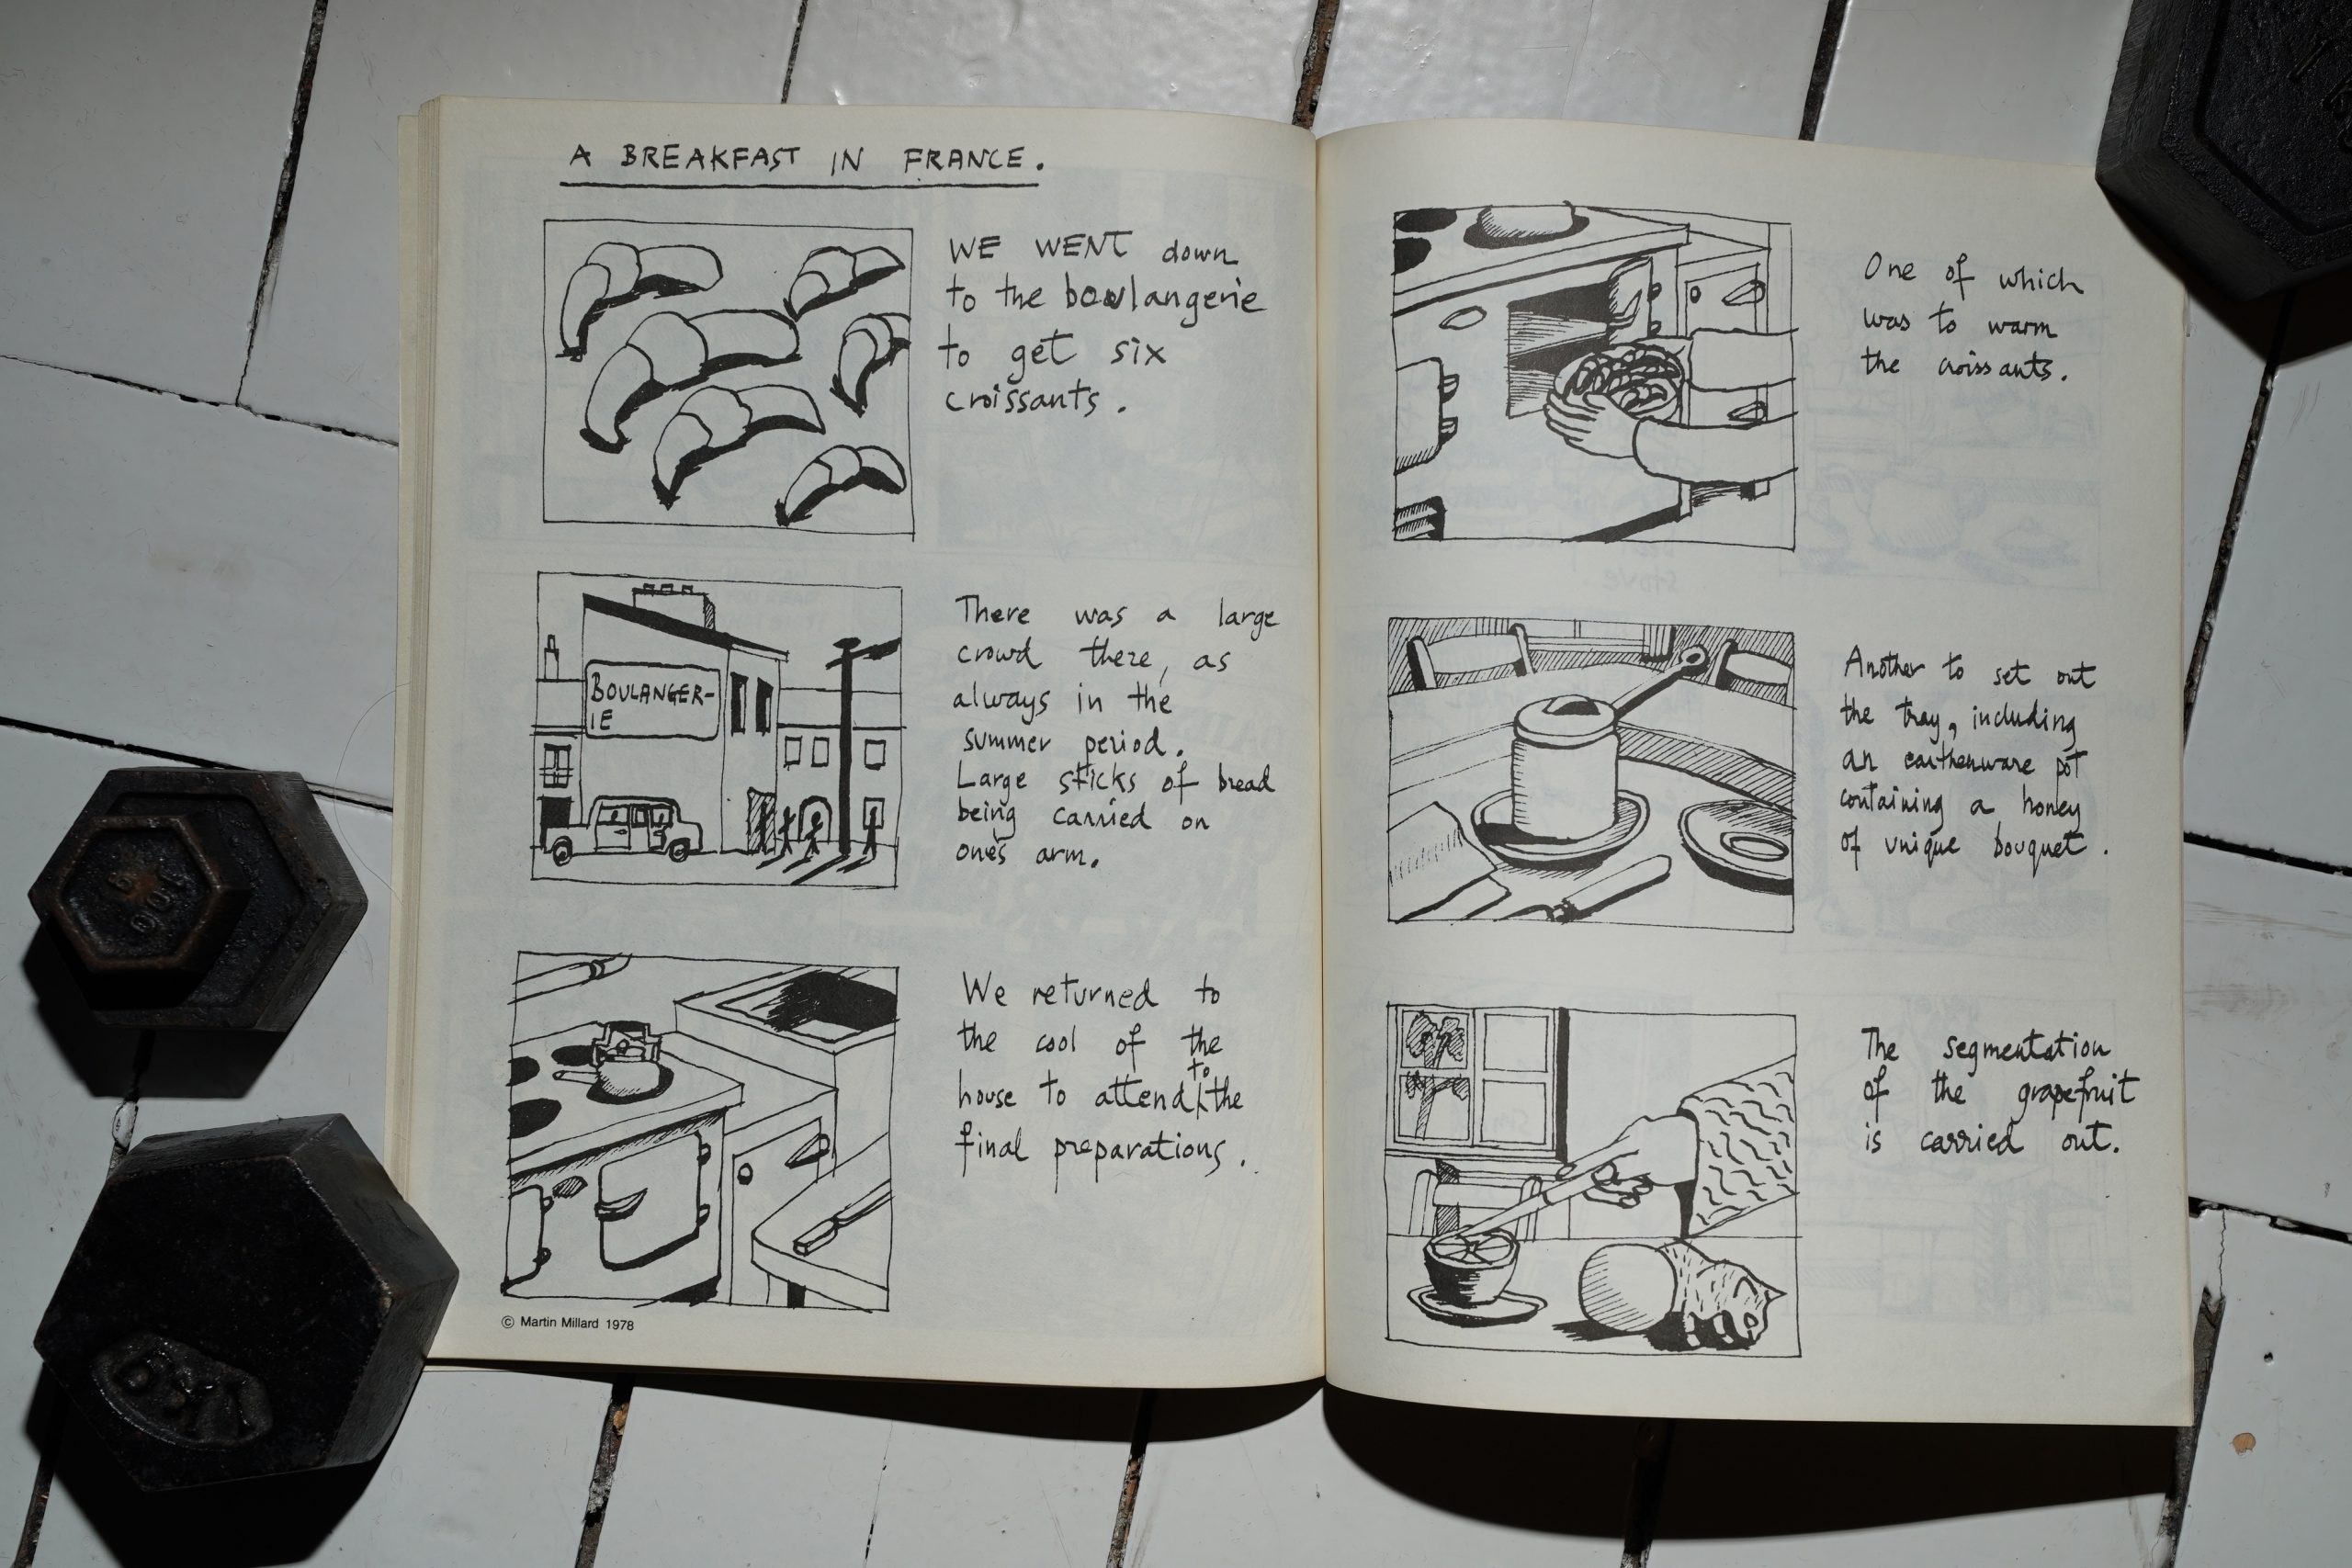 A BREAKFAST IN FRANCE.
WE WENT down
to the boulangerie
to get six
croissants.
BOULANGER-
IE
There was a large
crowd there, as
always in the
summer period.
Large sticks of bread
being carried on
one's arm.
We returned to
the cool of the
house to attend to the
final preparations.
© Martin Millard 1978
One of which
was to warm
the croissants.
Another to set out
the tray, including
an earthenware pot
containing a honey
of unique bouquet.
The segmentation
of the grapefruit
is carried out.